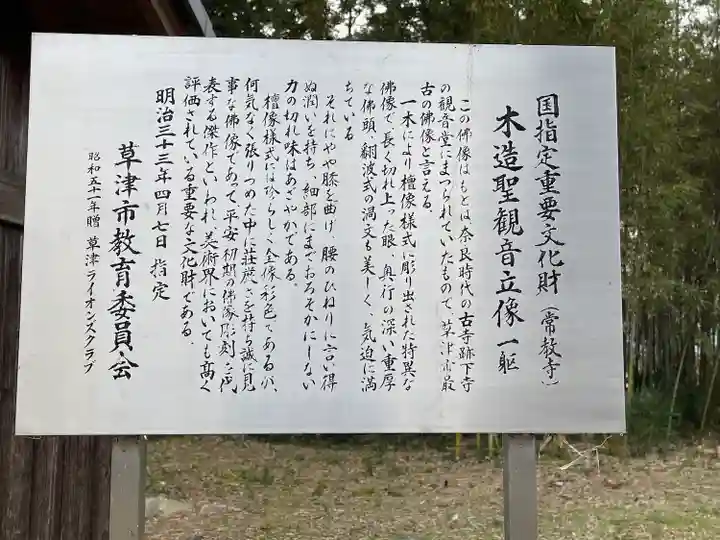 国指定重要文化財（常教寺）
木造聖観音立像 一躯
この佛像はもとは奈良時代の古寺跡下寺
の観音堂にまつられていたもので、草津市最
古の佛像と言える。
一木により檀像様式に彫り出された特異な
佛像で、長く切れ上った眼、奥行の深い重厚
な佛頭、翻波式の渦文も美しく、気迫に満
ちている
それにやや膝を曲げ、腰のひねりに言い得
ぬ潤いを持ち、細部にまでおろそかにしない
力の切れ味はあざやかである。
檀像様式には珍らしく全像彩色であるが、
何気なく張りつめた中に荘厳さを持ち誠に見
事な佛像であって平安初期の佛像彫刻を代
表する傑作といわれ、美術界においても高く
評価されている重要な文化財である。
明治三十三年四月七日 指定
草津市教育委員会
昭和五十一年贈 草津ライオンズクラブ